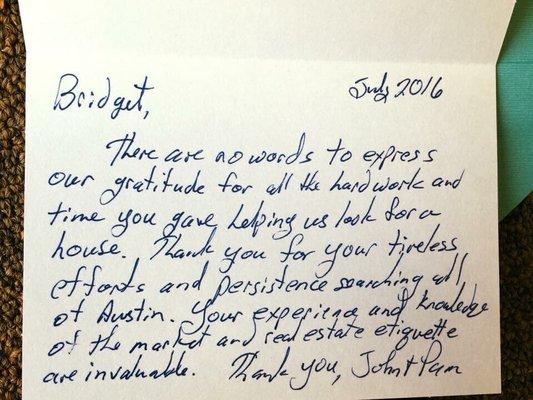 Bridget,
July 2016
There are no words to express
our gratitude for all the hard work and
time you gave helping us look for a
house. Thank you for your tireless
efforts and persistence searching all
of Austin. Your experience and knowledge
of the market and real estate etiquette
are invaluable. Thank you, John + Pam